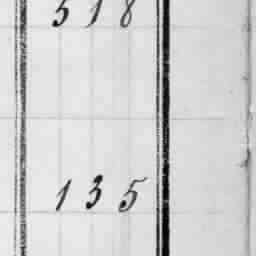 518
135